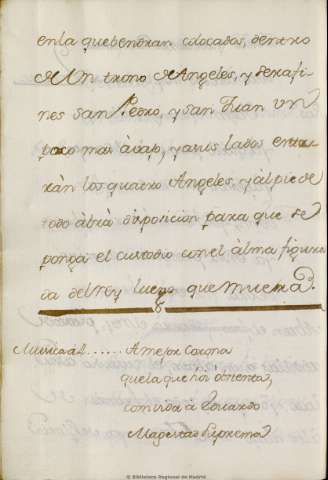 en la que bendran colocados, dentro
de Un trono de Angeles, y Serafi-
nes San Pedro, y San Juan Un
poco mas àbajo, y a sus lados
ràn los quatro Angeles, y àl pie de
todo àbrà disposicion para que se
ponga el custodio con el àlma figura
da del rey luego que muera.
Musica à4...... A mejor Corona
que la que hoi obtienes,
combida à Eduardo
Magestad Suprema
© Biblioteca Regional de Madrid